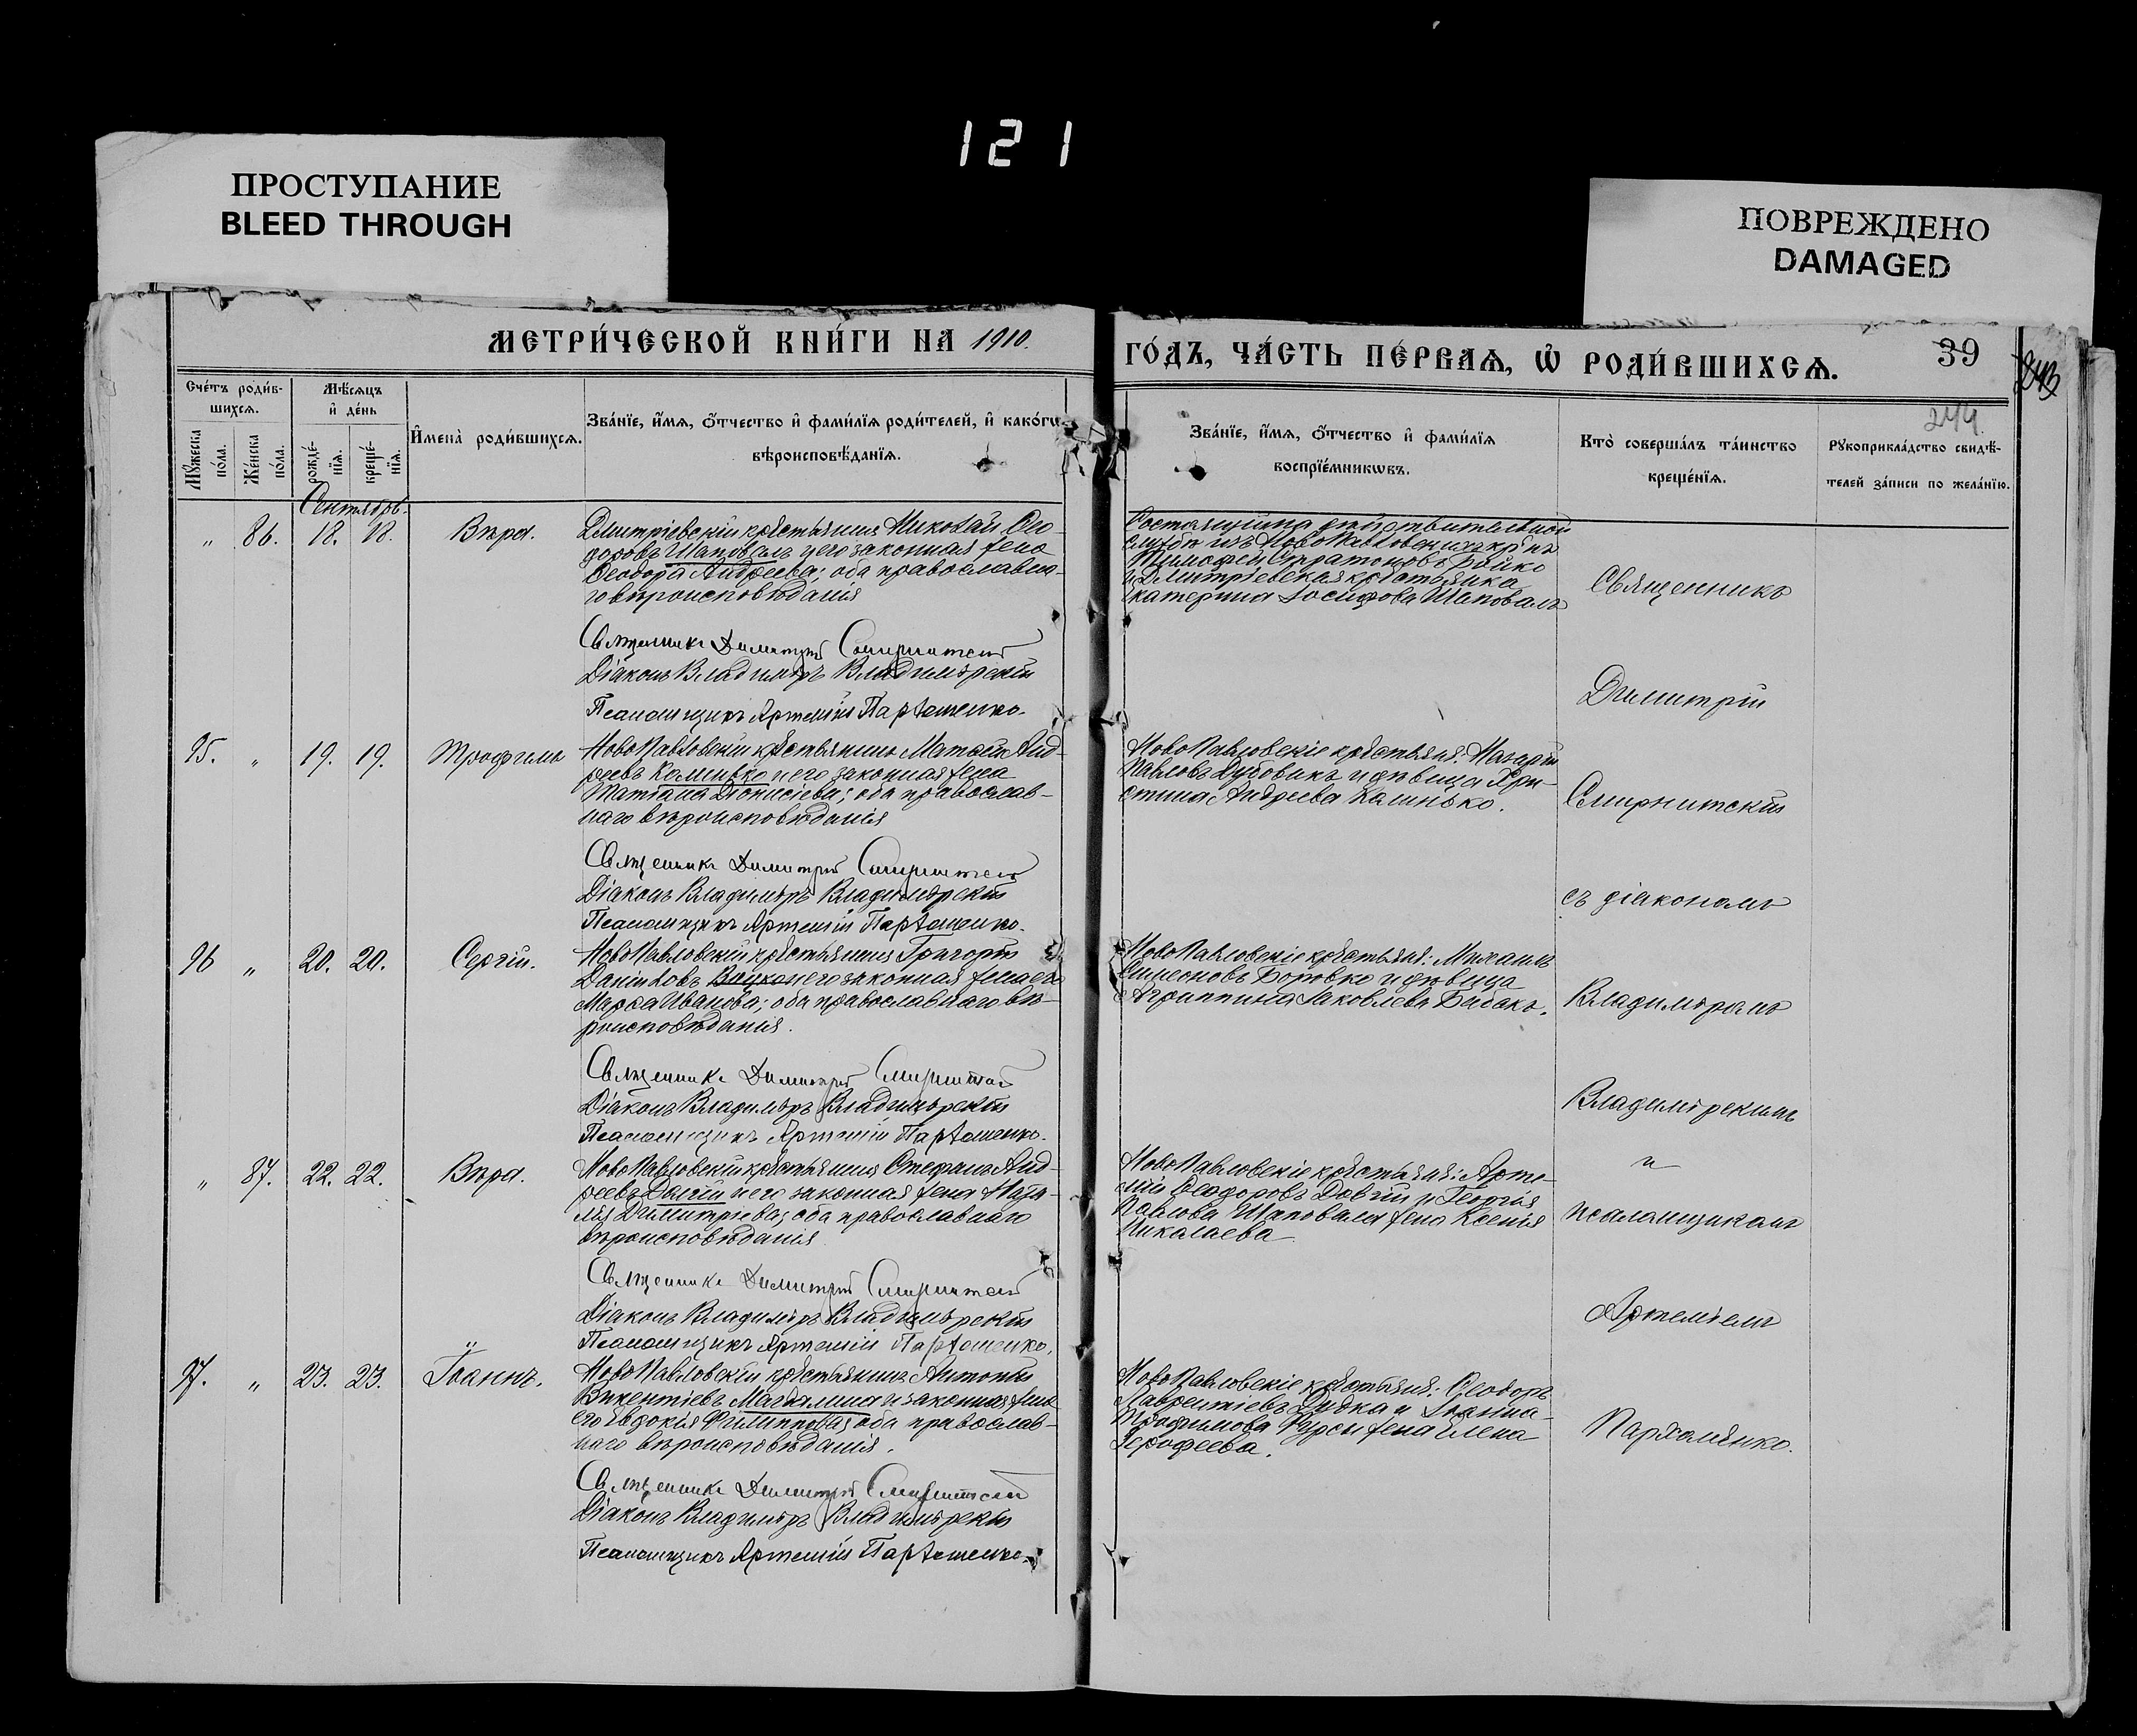 121
ПРОСТУПАНИЕ
BLEED THROUGH
ПОВРЕЖДЕНО
DAMAGED
МЕТРИ́ЧЕСКОЙ КНИ́ГИ НА 1910.
ГО́ДЪ, ЧА́СТЬ ПЕ́РВАѦ, Ѡ҆ РОДИ́ВШИХСѦ.
39
244
Сче́тъ роди́в-
шихсѧ.
Мѣ́сѧцъ
и҆ де́нь
Мꙋ́жеска
по́ла.
Же́нска
по́ла.
рожде́-
нїѧ.
креще́-
нїѧ.
И҆мена̀ роди́вшихсѧ.
Зва́нїе, и҆́мѧ, ѻ҆́тчество и҆ фами́лїѧ роди́телей, и҆ како́гѡ
вѣроисповѣ́данїѧ.
Зва́нїе, и҆́мѧ, ѻ҆́тчество и҆ фами́лїѧ
воспрїе́мникѡвъ.
Кто̀ соверша́лъ та́инство
креще́нїѧ.
Рꙋкоприкла́дство свидѣ́-
телей за́писи по жела́нїю.
Сентябрь.
„ 86. 18. 18. Вѣра.
Димитріевскій крестьянинъ Николай Ѳео-
доровъ Шаповалъ и его законная жена
Ѳеодора Андреева; оба православна-
го вѣроисповѣданія
Священникъ Димитрій Смирнитскій
Діаконъ Владиміръ Владимірскій
Псаломщикъ Артемій Пархоменко.
Состоящій на дѣйствительной
службѣ изъ Ново Павловскихъ кр-нъ
Тимофей Стратоновъ Бойко
и Димитріевская крестьянка
Екатерина Іосифова Шаповалъ
Священникъ
Димитрій
95. „ 19. 19. Трофимъ
Ново Павловскій крестьянинъ Матѳей Анд-
реевъ Калинько и его законная жена
Татіана Діонисіева; оба православ-
наго вѣроисповѣданія
Священникъ Димитрій Смирнитскій
Діаконъ Владиміръ Владимірскій
Псаломщикъ Артемій Пархоменко.
Ново Павловскіе крестьяне: Назарій
Павловъ Дубовикъ и дѣвица Хри-
стина Андреева Калинько.
Смирнитскій
съ діакономъ
96 „ 20. 20. Сергій.
Ново Павловскій крестьянинъ Григорій
Даніиловъ и его законная жена его
Марѳа Иванова; оба православнаго вѣ-
роисповѣданія.
Священникъ Димитрій Смирнитскій
Діаконъ Владиміръ Владимірскій
Псаломщикъ Артемій Пархоменко.
Ново Павловскіе крестьяне: Михаилъ
Симеоновъ Боровко и дѣвица
Агриппина Іаковлева Бабакъ.
Владиміромъ
Владимірскимъ
„ 87. 22. 22. Вѣра.
Ново Павловскій крестьянинъ Стефанъ Анд-
реевъ Долгій и его законная жена Ната-
лія Димитріева; оба православнаго
вѣроисповѣданія
Священникъ Димитрій Смирнитскій
Діаконъ Владиміръ Владимірскій
Псаломщикъ Артемій Пархоменко.
Ново Павловскіе крестьяне: Арте-
мій Ѳеодоровъ Довгій и Георгія
Павлова Шаповала жена Ксенія
Николаева
и
псаломщикомъ
Артеміемъ
97. „ 23. 23. Іоаннъ.
Ново Павловскій крестьянинъ Антоній
Викентіевъ и законная жена
его Евдокія Филиппова; оба православ-
наго вѣроисповѣданія.
Священникъ Димитрій Смирнитскій
Діаконъ Владиміръ Владимірскій
Псаломщикъ Артемій Пархоменко.
Ново Павловскіе крестьяне: Ѳеодоръ
Лаврентіевъ Дудка и Іоанна
Трофимова Фурсы жена Елена
Ерофеева.
Пархоменко.